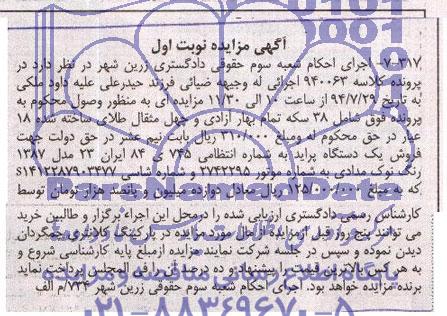 آگهی مزایده نوبت اول
۷-۳۱۷- اجرای احکام شعبه سوم حقوقی دادگستری زرین شهر در نظر دارد در
پرونده کلاسه ۹۴۰۰۶۳ اجرائی له وجیهه ضیائی فرزند حیدرعلی علیه داود ملکی
به تاریخ ۹۴/۷/۲۹ از ساعت ۱۰ الی ۱۱/۳۰ مزایده ای به منظور وصول محکوم به
پرونده فوق شامل ۳۸ سکه تمام بهار آزادی و چهل مثقال طلای ساخته شده ۱۸
عیار در حق محکوم له ومبلغ ۳۱۰/۰۰۰ ریال بابت نیم عشر در حق دولت جهت
فروش یک دستگاه پراید به شماره انتظامی ۷۴۵ ی ۸۴ ایران ۲۳ مدل ۱۳۸۷
رنگ نوک مدادی به شماره موتور ۲۷۴۲۲۹۵ و شماره شاسی S۱۴۱۲۲۸۷۹۰۳۴۷۷
که به مبلغ ۱۲۵/۰۰۰/۰۰۰ ریال معادل دوازده میلیون و پانصد هزار تومان توسط
کارشناس رسمی دادگستری ارزیابی شده را درمحل این اجراء برگزار و طالبین خرید
می توانند پنج روز قبل ازمزایده ازمال مورد مزایده در پارکینگ کلانتری چمگردان
دیدن نموده و سپس در جلسه شرکت نمایند مزایده ازمبلغ پایه کارشناسی شروع و
به هر کس بالاترین قیمت را پیشنهاد و ده درصد آن را فی المجلس پرداخت نماید
برنده مزایده خواهد بود. اجرای احکام شعبه سوم حقوقی زرین شهر ۷۳۴/م الف
ParsNamadData
۰۲۱-۸۸۳۴۹۶۷۰-۵